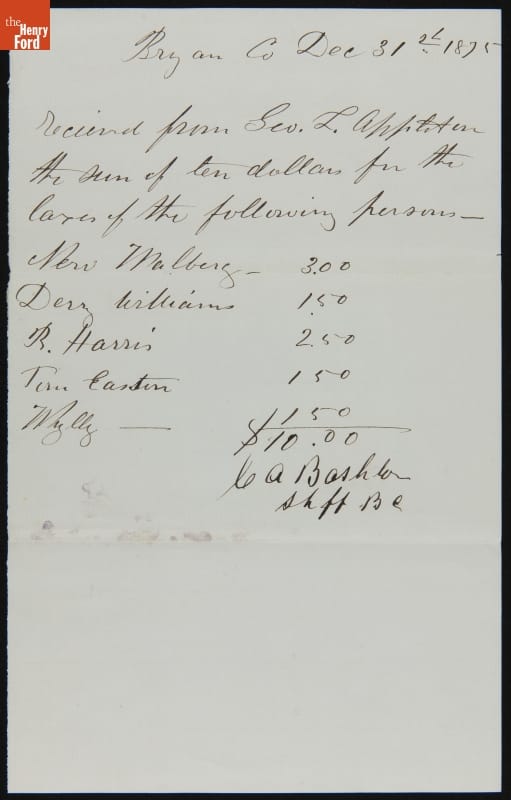 the
Henry
Ford
Bryan Co Dec 31st 1875
recieved from Geo. L. Appleton
the sum of ten dollars for the
taxes of the following persons—
New Malberg— 3.00
Derry Williams 1.50
R. Harris 2.50
Tim Easton 1 50
Wylly — 1 50
$10.00
C A Bashlor
Shff B C